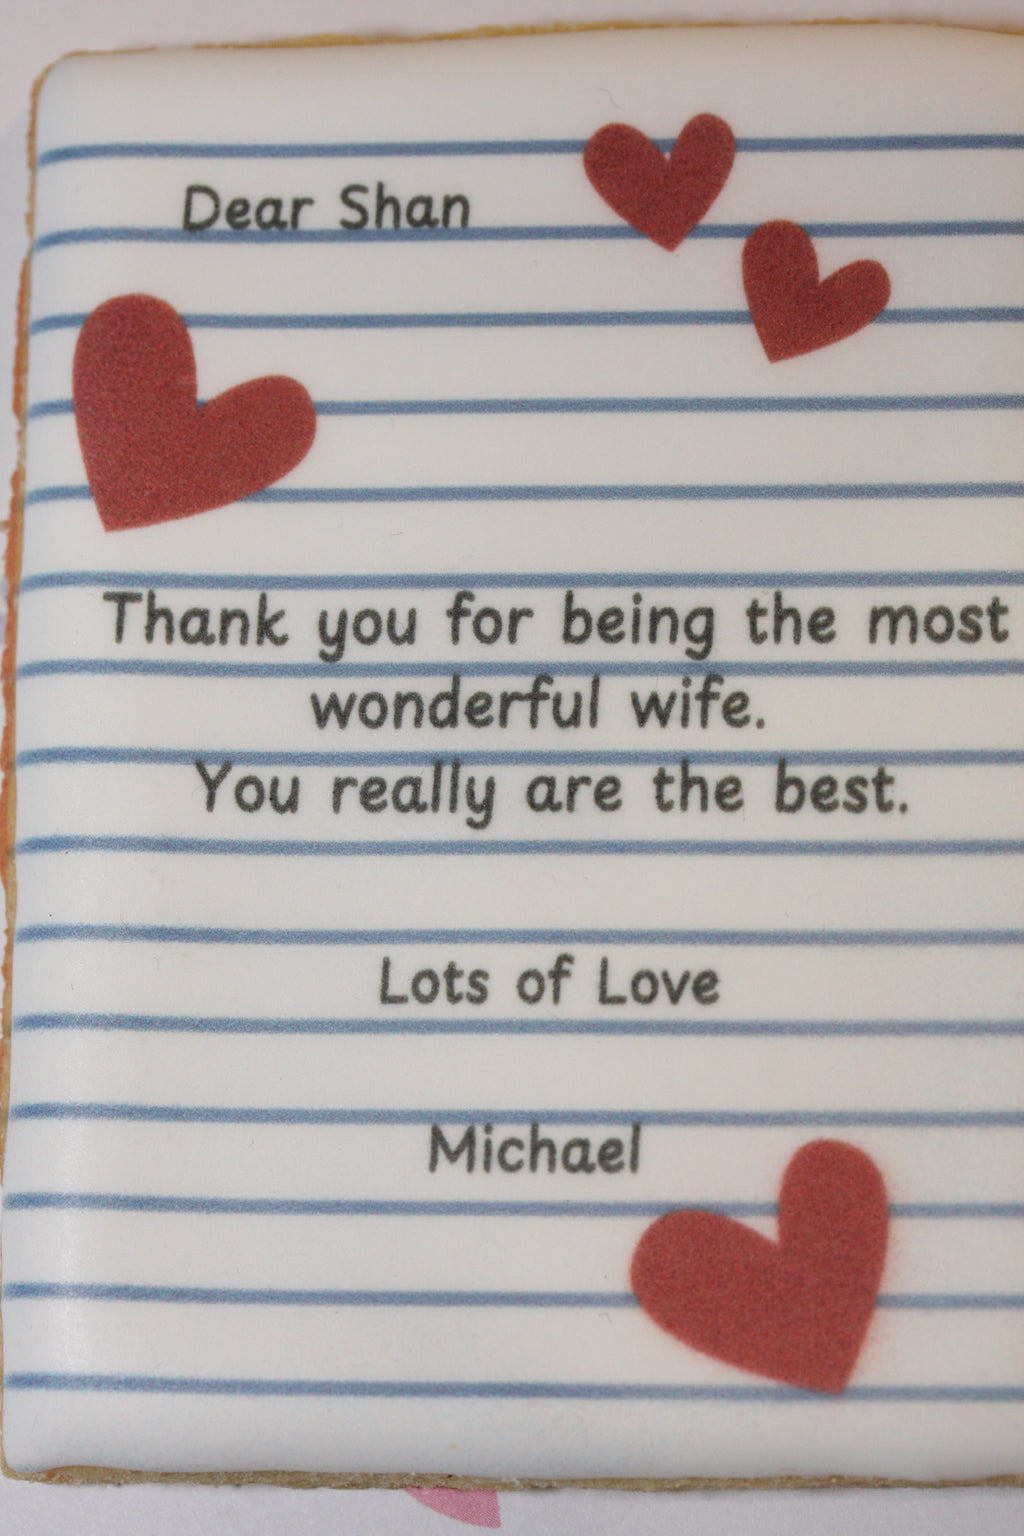 Dear Shan
Thank you for being the most
wonderful wife.
You really are the best.
Lots of Love
Michael